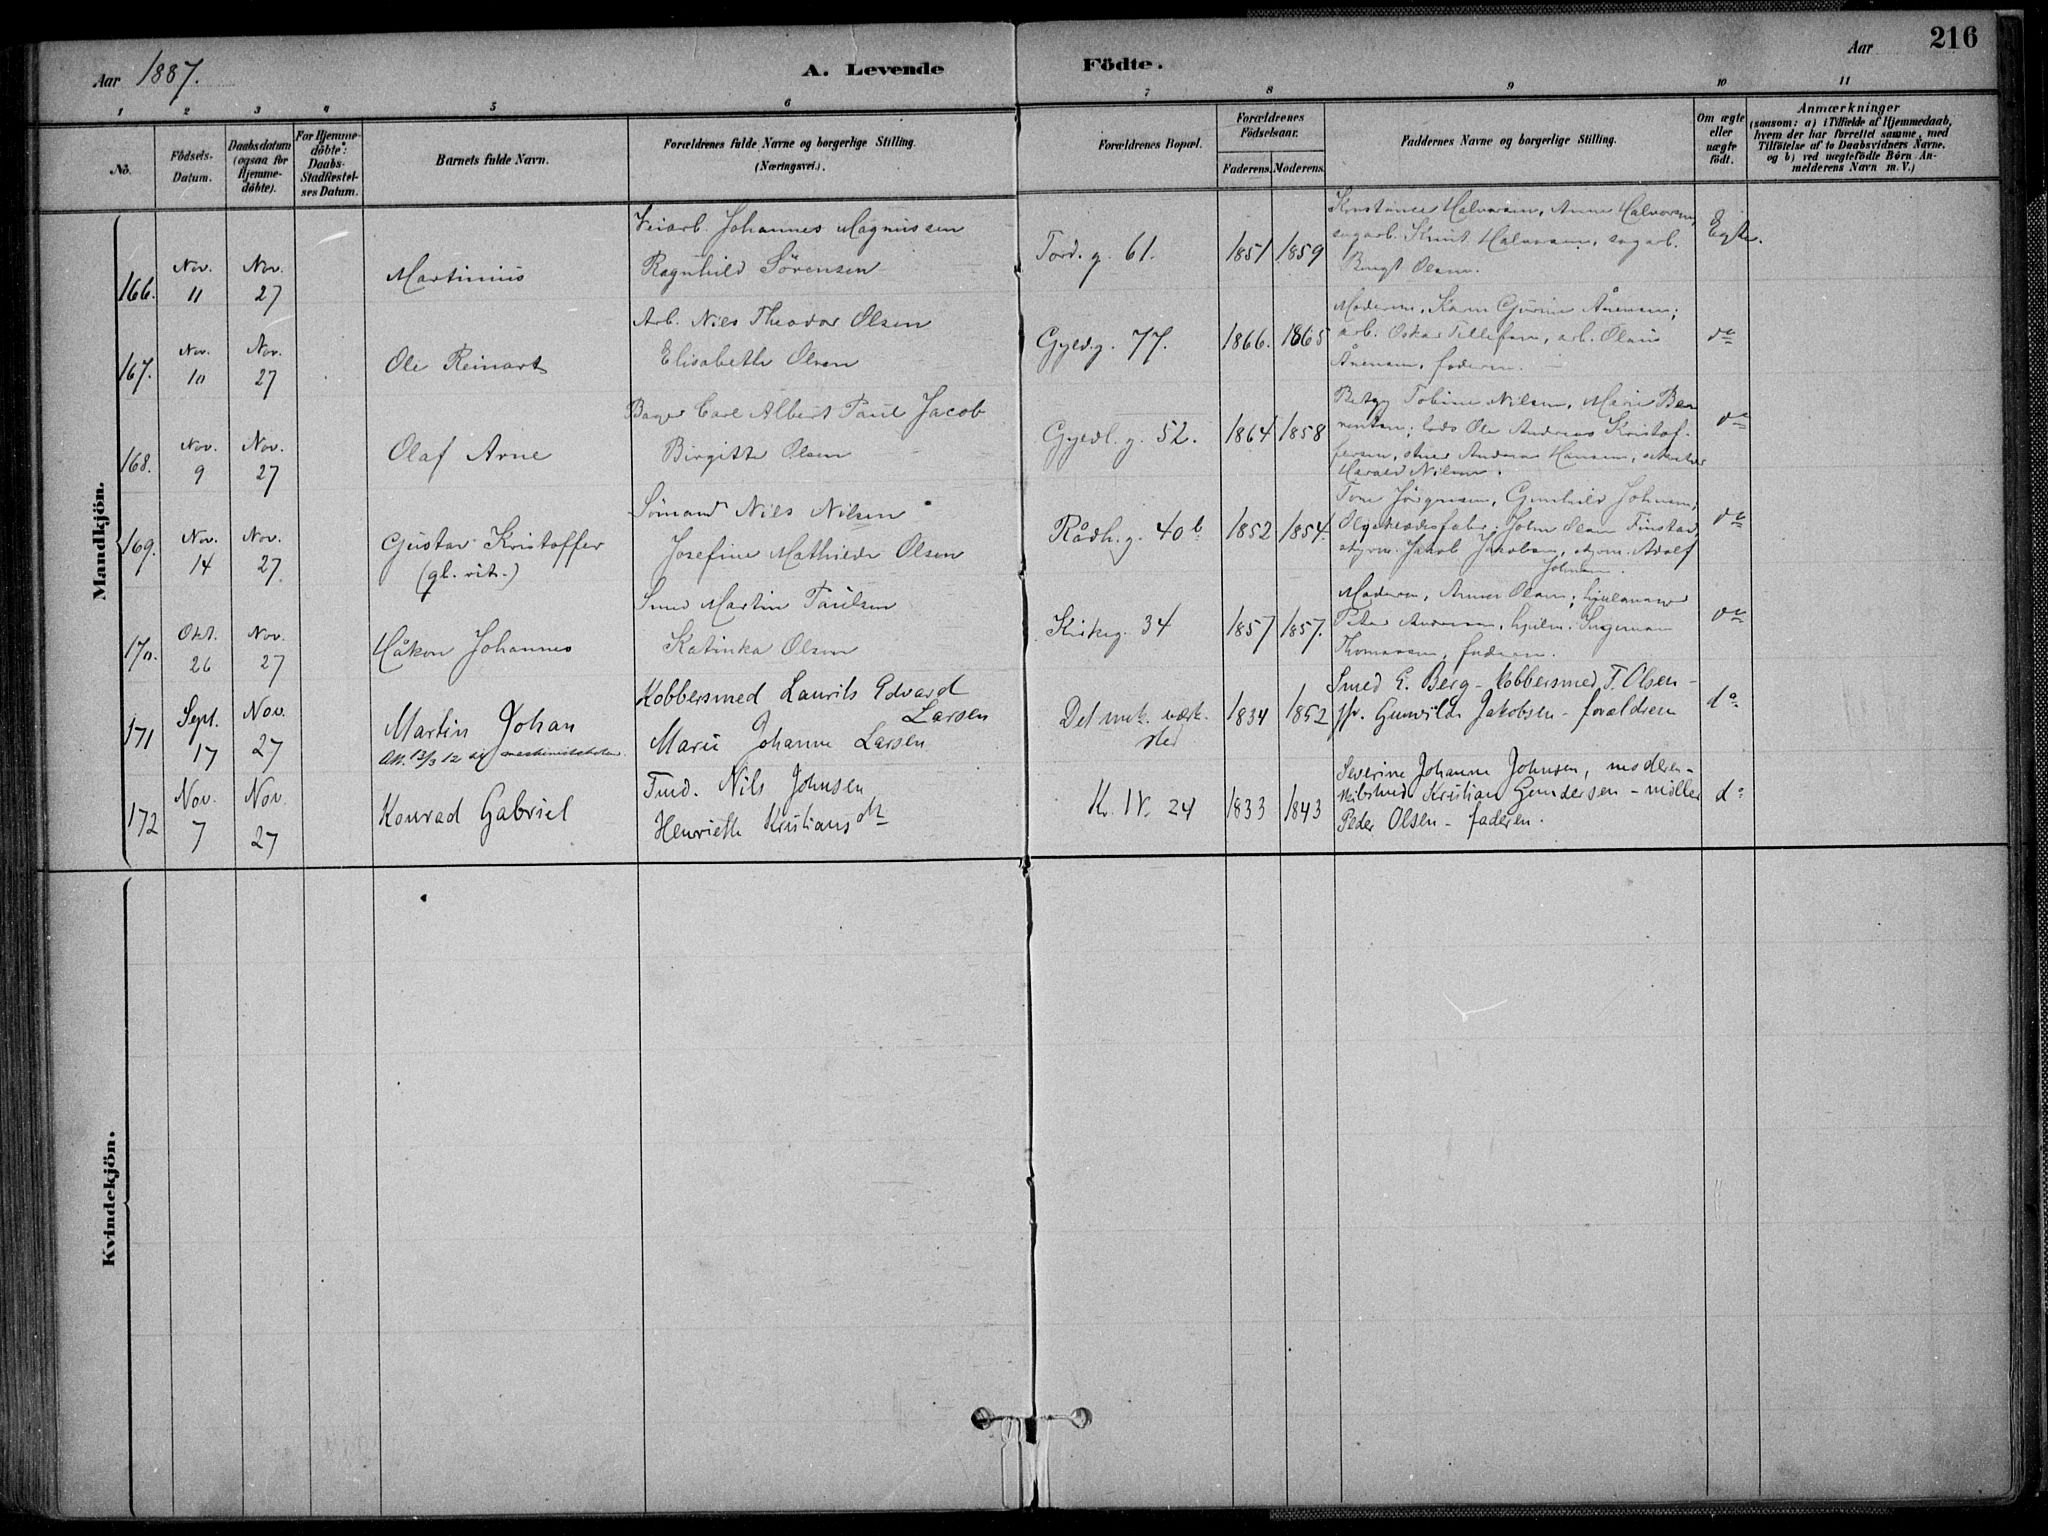 216
Aar 1887.
A. Levende Födte.
Aar
1 2 3 4 5 6 7 8 9 10 11
No.
Födsels-Datum.
Daabsdatum (ogsaa for Hjemme-döbte).
For Hjemme-döbte: Daabs-Stadfæstel-ses Datum.
Barnets fulde Navn.
Forældrenes fulde Navne og borgerlige Stilling.
(Næringsvei.)
Forældrenes Bopæl.
Forældrenes Födselsaar.
Faderens. Moderens.
Faddernes Navne og borgerlige Stilling.
Om ægte eller uægte födt.
Anmærkninger
(saasom: a) i Tilfælde af Hjemmedaab,
hvem der har forrettet samme, med
Tilföielse af to Daabsvidners Navne.
og b) ved uægtefödte Börn An-
melderens Navn m. V.)
Mandkjön.
166. Nov. 11 Nov. 27 Martinius
Veiarb. Johannes Magnussen
Ragnhild Sörensen
Tord. g. 61. 1851 1859
Konstance Halvorsen, Anne Halvorsen,
sagarb. Knut Halvorsen, sagarb.
Bengt Olsen.
Egte.
167. Nov. 10 Nov. 27 Ole Reinart
Arb. Nils Theodor Olsen
Elisabeth Olsen
Gyld.g. 77. 1866. 1865
Moderen, Karen Gurine Ånensen;
arb. Oskar Tellefsen, arb. Olaus
Ånensen, faderen.
do
168. Nov. 9 Nov. 27 Olaf Arne
Bager Carl Albert Paul Jacob
Birgitte Olsen
Gyldl. g. 52. 1864 1858
Tobine Nilsen, Marie
lods Ole Andreas Kristof-
fersen, Andreas Hansen,
Harald Nilsen.
do
169. Nov. 14 Nov. 27 Gustav Kristoffer
(gl. rit.)
Sömand Nils Nilsen
Josefine Mathilde Olsen
Rådh. g. 40b. 1852 1854.
Tone Jörgensen, Gunhild Johnsen,
John Olsen Finstad,
styrm. Jakob Jakobsen, styrm. Adolf
Johnsen.
do
170. Okt. 26 Nov. 27 Håkon Johannes
Smed Martin Paulsen
Katinka Olsen
Kirkeg. 34 1857 1857.
Moderen, Anne Olsen; hjulmager
Peter Andersen, hjulm. Ingeman
Thomassen, faderen.
do
171 Sept. 17 Nov. 27 Martin Johan
Att. 13/3 12 til maskinistskolen
Kobbersmed Laurits Edvard
Larsen
Marie Johanne Larsen
Det mek. værk-
sted 1834 1852
Smed E. Berg - Kobbersmed T. Olsen -
fr. Gunvild Jakobsen - forældrene
do.
172 Nov. 7 Nov. 27 Konrad Gabriel
Tmd. Nils Johnsen
Henriette Kristiansdtt
Kv. IV. 24 1833 1843
Severine Johanne Johnsen, moderen -
Kristian Gundersen - møller
Peder Olsen - faderen.
do
Kvindekjön.